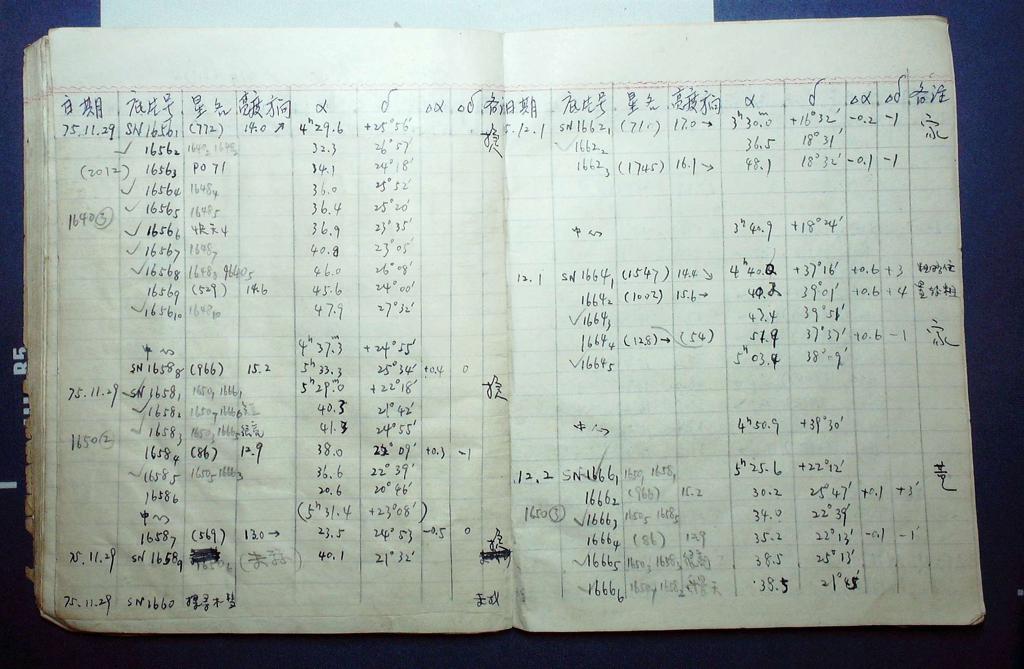 日期 底片号 星名 亮度方向 α δ Δα Δδ 备注
75.11.29 SN1656₁ (772) 14.0 ↗ 4ʰ29.6 +25°56′
✓ 1656₂ 32.3 26°57′
(2012) 1656₃ PO 71 34.1 24°18′
✓ 1656₄ 1648₄ 36.0 25°52′
✓ 1656₅ 1648₅ 36.4 25°20′
1640③
✓ 1656₆ 36.9 23°35′
✓ 1656₇ 1648₇ 40.8 23°05′
✓ 1656₈ 1648₃ 46.0 26°08′
1656₉ (529) 14.6 45.6 24°00′
✓ 1656₁₀ 1648₁₀ 47.9 27°32′
中心 4ʰ37.3 +24°55′
SN1658₈ (966) 15.2 5ʰ33.3 25°34′ +0.4 0
75.11.29 ✓ SN1658₁ 1650₁ 1666₁ 5ʰ29ᵐ.0 +22°18′
✓ 1658₂ 40.5 21°42′
✓ 1658₃ 1650₃ 1666₅ 很亮 41.3 24°55′
1650②
1658₄ (86) 12.9 38.0 22°09′ +0.3 -1
✓ 1658₅ 1650₅ 1666₃ 36.6 22°39′
1658₆ 20.6 20°46′
中心 (5ʰ31.4 +23°08′)
1658₇ (569) 13.0 → 23.5 24°53′ -0.5 0
75.11.29 SN1658₉ 40.1 21°32′
75.11.29 SN1660
日期 底片号 星名 亮度方向 α δ Δα Δδ 备注
5.12.1 SN1662₁ (711) 17.0 → 3ʰ30ᵐ.0 +16°32′ -0.2 -1 家
✓ 1662₂ 36.5 18°31′
1662₃ (1745) 16.1 → 48.1 18°32′ -0.1 -1
中心 3ʰ40.9 +18°24′
12.1 SN1664₁ (1547) 14.4 ↘ 4ʰ40.0 +37°16′ +0.6 +3
1664₂ (1002) 15.6 → 39°01′ +0.6 +4
✓ 1664₃ 43.4 39°51′
1664₄ (128) → (54) 51.9 37°37′ +0.6 -1 家
✓ 1664₅ 5ʰ03.4 38°09′
中心 4ʰ50.9 +39°30′
.12.2 SN1666₁ 1650₁ 1658₁ 5ʰ25.6 +22°12′
1666₂ (966) 15.2 30.2 25°47′ +0.1 +3′
1650③ ✓ 1666₃ 1650₅ 1658₅ 34.0 22°39′
1666₄ (86) 12.9 35.2 22°13′ -0.1 -1′
✓ 1666₅ 1650₃ 1658₃ 很亮 38.5 25°13′
✓ 1666₆ 38.5 21°45′